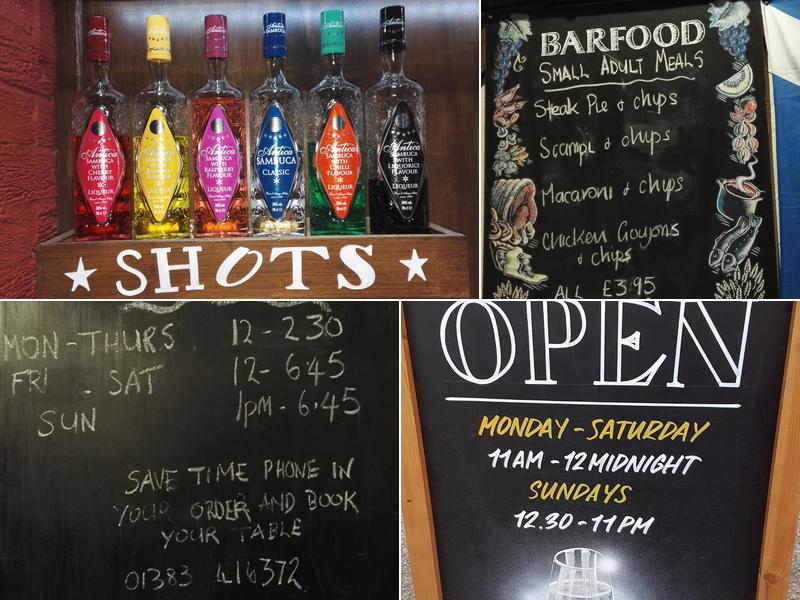 Antica
SAMBUCA
WITH
CHERRY
FLAVOUR
LIQUEUR
Antica
SAMBUCA
WITH
BANANA
FLAVOUR
LIQUEUR
Antica
SAMBUCA
WITH
RASPBERRY
FLAVOUR
LIQUEUR
Antica
SAMBUCA
CLASSIC
LIQUEUR
Antica
SAMBUCA
WITH
CHILLI
FLAVOUR
LIQUEUR
Antica
SAMBUCA
WITH
LIQUORICE
FLAVOUR
LIQUEUR
SHOTS
BARFOOD
SMALL ADULT MEALS
Steak Pie & chips
Scampi & chips
Macaroni & chips
Chicken Goujons
& chips
ALL £3.95
MON-THURS 12-2.30
FRI - SAT 12-6.45
SUN 1pm-6.45
SAVE TIME PHONE IN
YOUR ORDER AND BOOK
YOUR TABLE
01383 416372
OPEN
MONDAY-SATURDAY
11AM-12MIDNIGHT
SUNDAYS
12.30-11PM